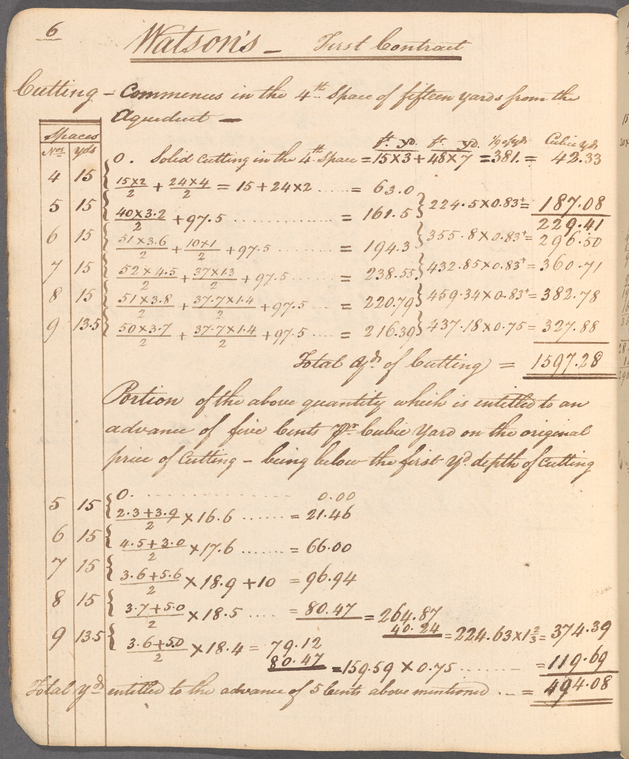 6
Watson's – First Contract
Cutting – Commences in the 4th Space of fifteen yards from the
Aqueduct –
Spaces
Nos yds
ft. yd. ft. yd. Cubic yds
0. Solid Cutting in the 4th Space = 15×3 + 48×7 = 381 = 42.33
4 15 15×2/2 + 24×4/2 = 15+24×2 ..... = 63.0
224.5×0.83+ = 187.08
229.41
5 15 40×3.2/2 + 97.5 ............ = 161.5
355.8×0.83+ = 296.50
6 15 51×3.6/2 + 10×1/2 + 97.5 ...... = 194.3
432.85×0.83+ = 360.71
7 15 52×4.5/2 + 37×1.3/2 + 97.5 ...... = 238.55
459.34×0.83+ = 382.78
8 15 51×3.8/2 + 37.7×1.4/2 + 97.5 .... = 220.79
437.18×0.75 = 327.88
9 13.5 50×3.7/2 + 37.7×1.4/2 + 97.5 .... = 216.39
Total yds of Cutting = 1597.28
Portion of the above quantity which is entitled to an
advance of five Cents pr Cubic Yard on the original
price of Cutting – being below the first yd depth of Cutting
0. ............ 0.00
5 15 2.3+3.9/2 ×16.6 ...... = 21.46
6 15 4.5+3.0/2 ×17.6 ...... = 66.00
7 15 3.6+5.6/2 ×18.9 +10 = 96.94
8 15 3.7+5.0/2 ×18.5 .... = 80.47 = 264.87
40.24 = 224.63×1 2/3 = 374.39
9 13.5 3.6+5.0/2 ×18.4 = 79.12
80.47 = 159.59 × 0.75 ........ = 119.69
Total yds entitled to the advance of 5 Cents above mentioned ... = 494.08